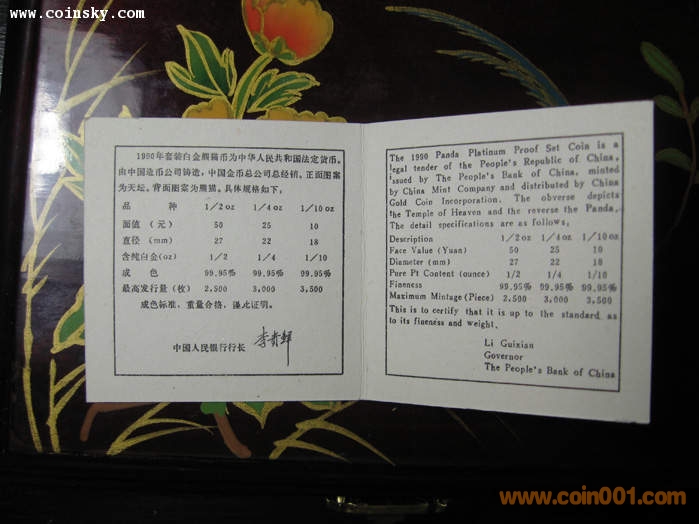 www.coinsky.com
1990年套装白金熊猫币为中华人民共和国法定货币。
由中国造币公司铸造，中国金币总公司总经销。正面图案
为天坛。背面图案为熊猫。具体规格如下：
品 种 1/2oz 1/4oz 1/10oz
面值（元） 50 25 10
直径（mm） 27 22 18
含纯白金(oz) 1/2 1/4 1/10
成 色 99.95% 99.95% 99.95%
最高发行量（枚） 2,500 3,000 3,500
成色标准，重量合格，谨此证明。
中国人民银行行长 李贵鲜
The 1990 Panda Platinum Proof Set Coin is a
legal tender of the People's Republic of China,
issued by The People's Bank of China, minted
by China Mint Company and distributed by China
Gold Coin Incorporation. The obverse depicts
the Temple of Heaven and the reverse the Panda.
The detail specifications are as follows,
Description 1/2oz 1/4oz 1/10oz
Face Value (Yuan) 50 25 10
Diameter (mm) 27 22 18
Pure Pt Content (ounce) 1/2 1/4 1/10
Fineness 99.95% 99.95% 99.95%
Maximum Mintage (Piece) 2,500 3,000 3,500
This is to certify that it is up to the standard as
to its fineness and weight.
Li Guixian
Governor
The People's Bank of China
www.coin001.com